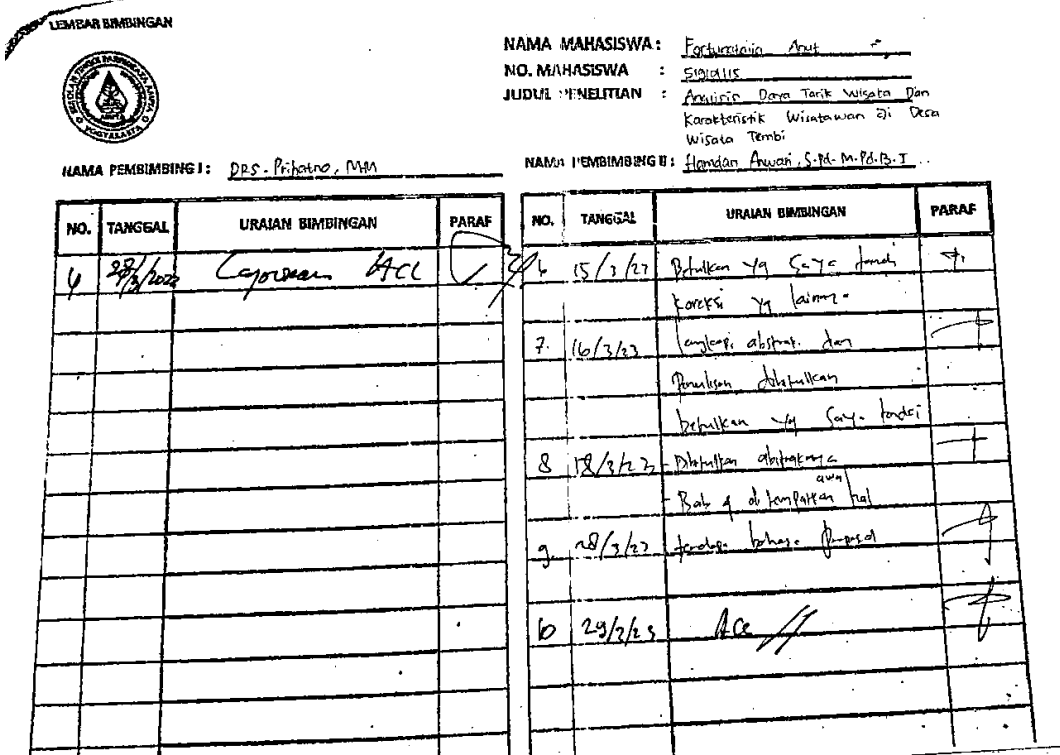 LEMBAR BIMBINGAN
SEKOLAH TINGGI PARIWISATA AMPTA
YOGYAKARTA
NAMA MAHASISWA :
NO. MAHASISWA :
JUDUL PENELITIAN : Analisis Daya Tarik Wisata Dan
Karakteristik Wisatawan Di Desa
Wisata Tembi
NAMA PEMBIMBING I : DRS. Prihatno, MM
NAMA PEMBIMBING II : Hamdan Anwari, S.Pd. M.Pd.B.I
NO. TANGGAL URAIAN BIMBINGAN PARAF
4 ACC
NO. TANGGAL URAIAN BIMBINGAN PARAF
6 15/3/23 Betulkan yg saya tandi
Koreksi yg lainnya
7. 16/3/23 lengkapi abstrak dan
Penulisan dibetulkan
betulkan yg saya tandai
8 18/3/23 - Dibetulkan abstraknya
- Bab 4 di tempatkan awal hal
9. 28/3/23 bahasa proposal
10 29/3/23 Acc